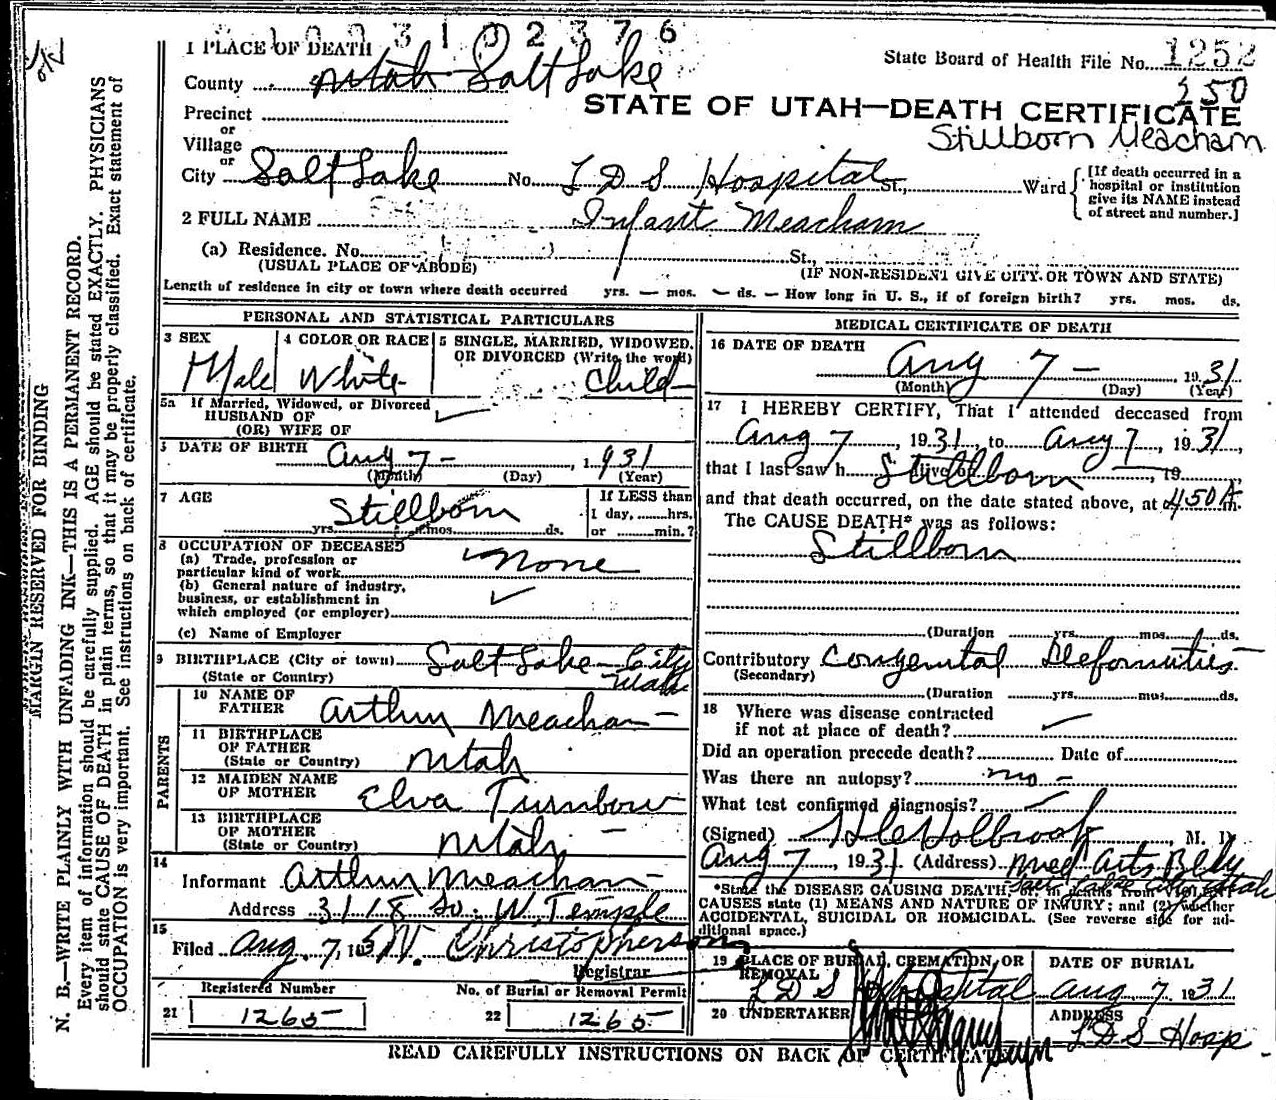 1 0 0 3 1 0 2 3 7 6
1 PLACE OF DEATH
State Board of Health File No. 1252
250
County Utah Salt Lake
STATE OF UTAH—DEATH CERTIFICATE
Stillborn Meacham
Precinct
or
Village
or
City Salt Lake No. L D S Hospital St., Ward
[If death occurred in a hospital or institution give its NAME instead of street and number.]
2 FULL NAME Infant Meacham
(a) Residence. No. St.,
(USUAL PLACE OF ABODE) (IF NON-RESIDENT GIVE CITY OR TOWN AND STATE)
Length of residence in city or town where death occurred yrs. — mos. — ds. — How long in U. S., if of foreign birth? yrs. mos. ds.
MARGIN RESERVED FOR BINDING
N. B.—WRITE PLAINLY WITH UNFADING INK—THIS IS A PERMANENT RECORD.
Every item of information should be carefully supplied. AGE should be stated EXACTLY. PHYSICIANS
should state CAUSE OF DEATH in plain terms, so that it may be properly classified. Exact statement of
OCCUPATION is very important. See instructions on back of certificate.
PERSONAL AND STATISTICAL PARTICULARS
3 SEX Male
4 COLOR OR RACE White
5 SINGLE, MARRIED, WIDOWED, OR DIVORCED (Write the word) Child
5a If Married, Widowed, or Divorced
HUSBAND OF
(OR) WIFE OF
DATE OF BIRTH Aug 7 – , 1931
(Month) (Day) (Year)
7 AGE Stillborn
yrs. mos. ds.
If LESS than
1 day, hrs.
or min.?
8 OCCUPATION OF DECEASED
(a) Trade, profession or
particular kind of work None
(b) General nature of industry,
business, or establishment in
which employed (or employer)
(c) Name of Employer
9 BIRTHPLACE (City or town) Salt Lake City
(State or Country) Utah
PARENTS
10 NAME OF FATHER Arthur Meacham
11 BIRTHPLACE OF FATHER
(State or Country) Utah
12 MAIDEN NAME OF MOTHER Elva Turnbow
13 BIRTHPLACE OF MOTHER
(State or Country) Utah
14
Informant Arthur Meacham
Address 3118 So. W. Temple
15
Filed Aug. 7, 193 Christopherson
Registrar
Registered Number
21 1265
No. of Burial or Removal Permit
22 1265
MEDICAL CERTIFICATE OF DEATH
16 DATE OF DEATH Aug 7 – 1931
(Month) (Day) (Year)
17 I HEREBY CERTIFY, That I attended deceased from
Aug 7, 1931, to Aug 7, 1931,
that I last saw h alive on Stillborn 19
and that death occurred, on the date stated above, at 450 A m.
The CAUSE DEATH* was as follows:
Stillborn
(Duration yrs. mos. ds.
Contributory Congenital Deformities
(Secondary)
(Duration yrs. mos. ds.
18 Where was disease contracted
if not at place of death?
Did an operation precede death? Date of
Was there an autopsy? no –
What test confirmed diagnosis?
(Signed) Holbrook, M. D.
Aug 7, 1931. (Address) Med Arts Bldg
*State the DISEASE CAUSING DEATH, or in deaths from VIOLENT
CAUSES state (1) MEANS AND NATURE OF INJURY; and (2) whether
ACCIDENTAL, SUICIDAL OR HOMICIDAL. (See reverse side for additional space.)
19 PLACE OF BURIAL, CREMATION, OR REMOVAL
L D S Hospital
DATE OF BURIAL
Aug 7 1931
20 UNDERTAKER
ADDRESS
L D S Hosp
READ CAREFULLY INSTRUCTIONS ON BACK OF CERTIFICATE